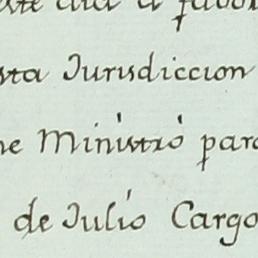 este dia a favor
sta Jurisdiccion
ne Ministró para
de Julio Cargo